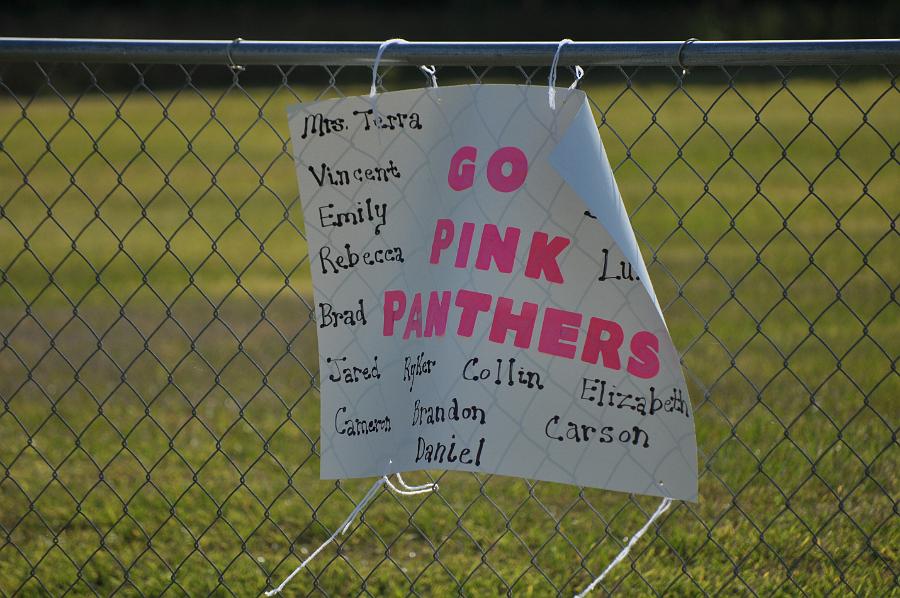 Mrs. Terra
Vincent
Emily
Rebecca
Brad
GO
PINK
PANTHERS
Lu.
Jared Ryker Collin Elizabeth
Cameron Brandon Carson
Daniel